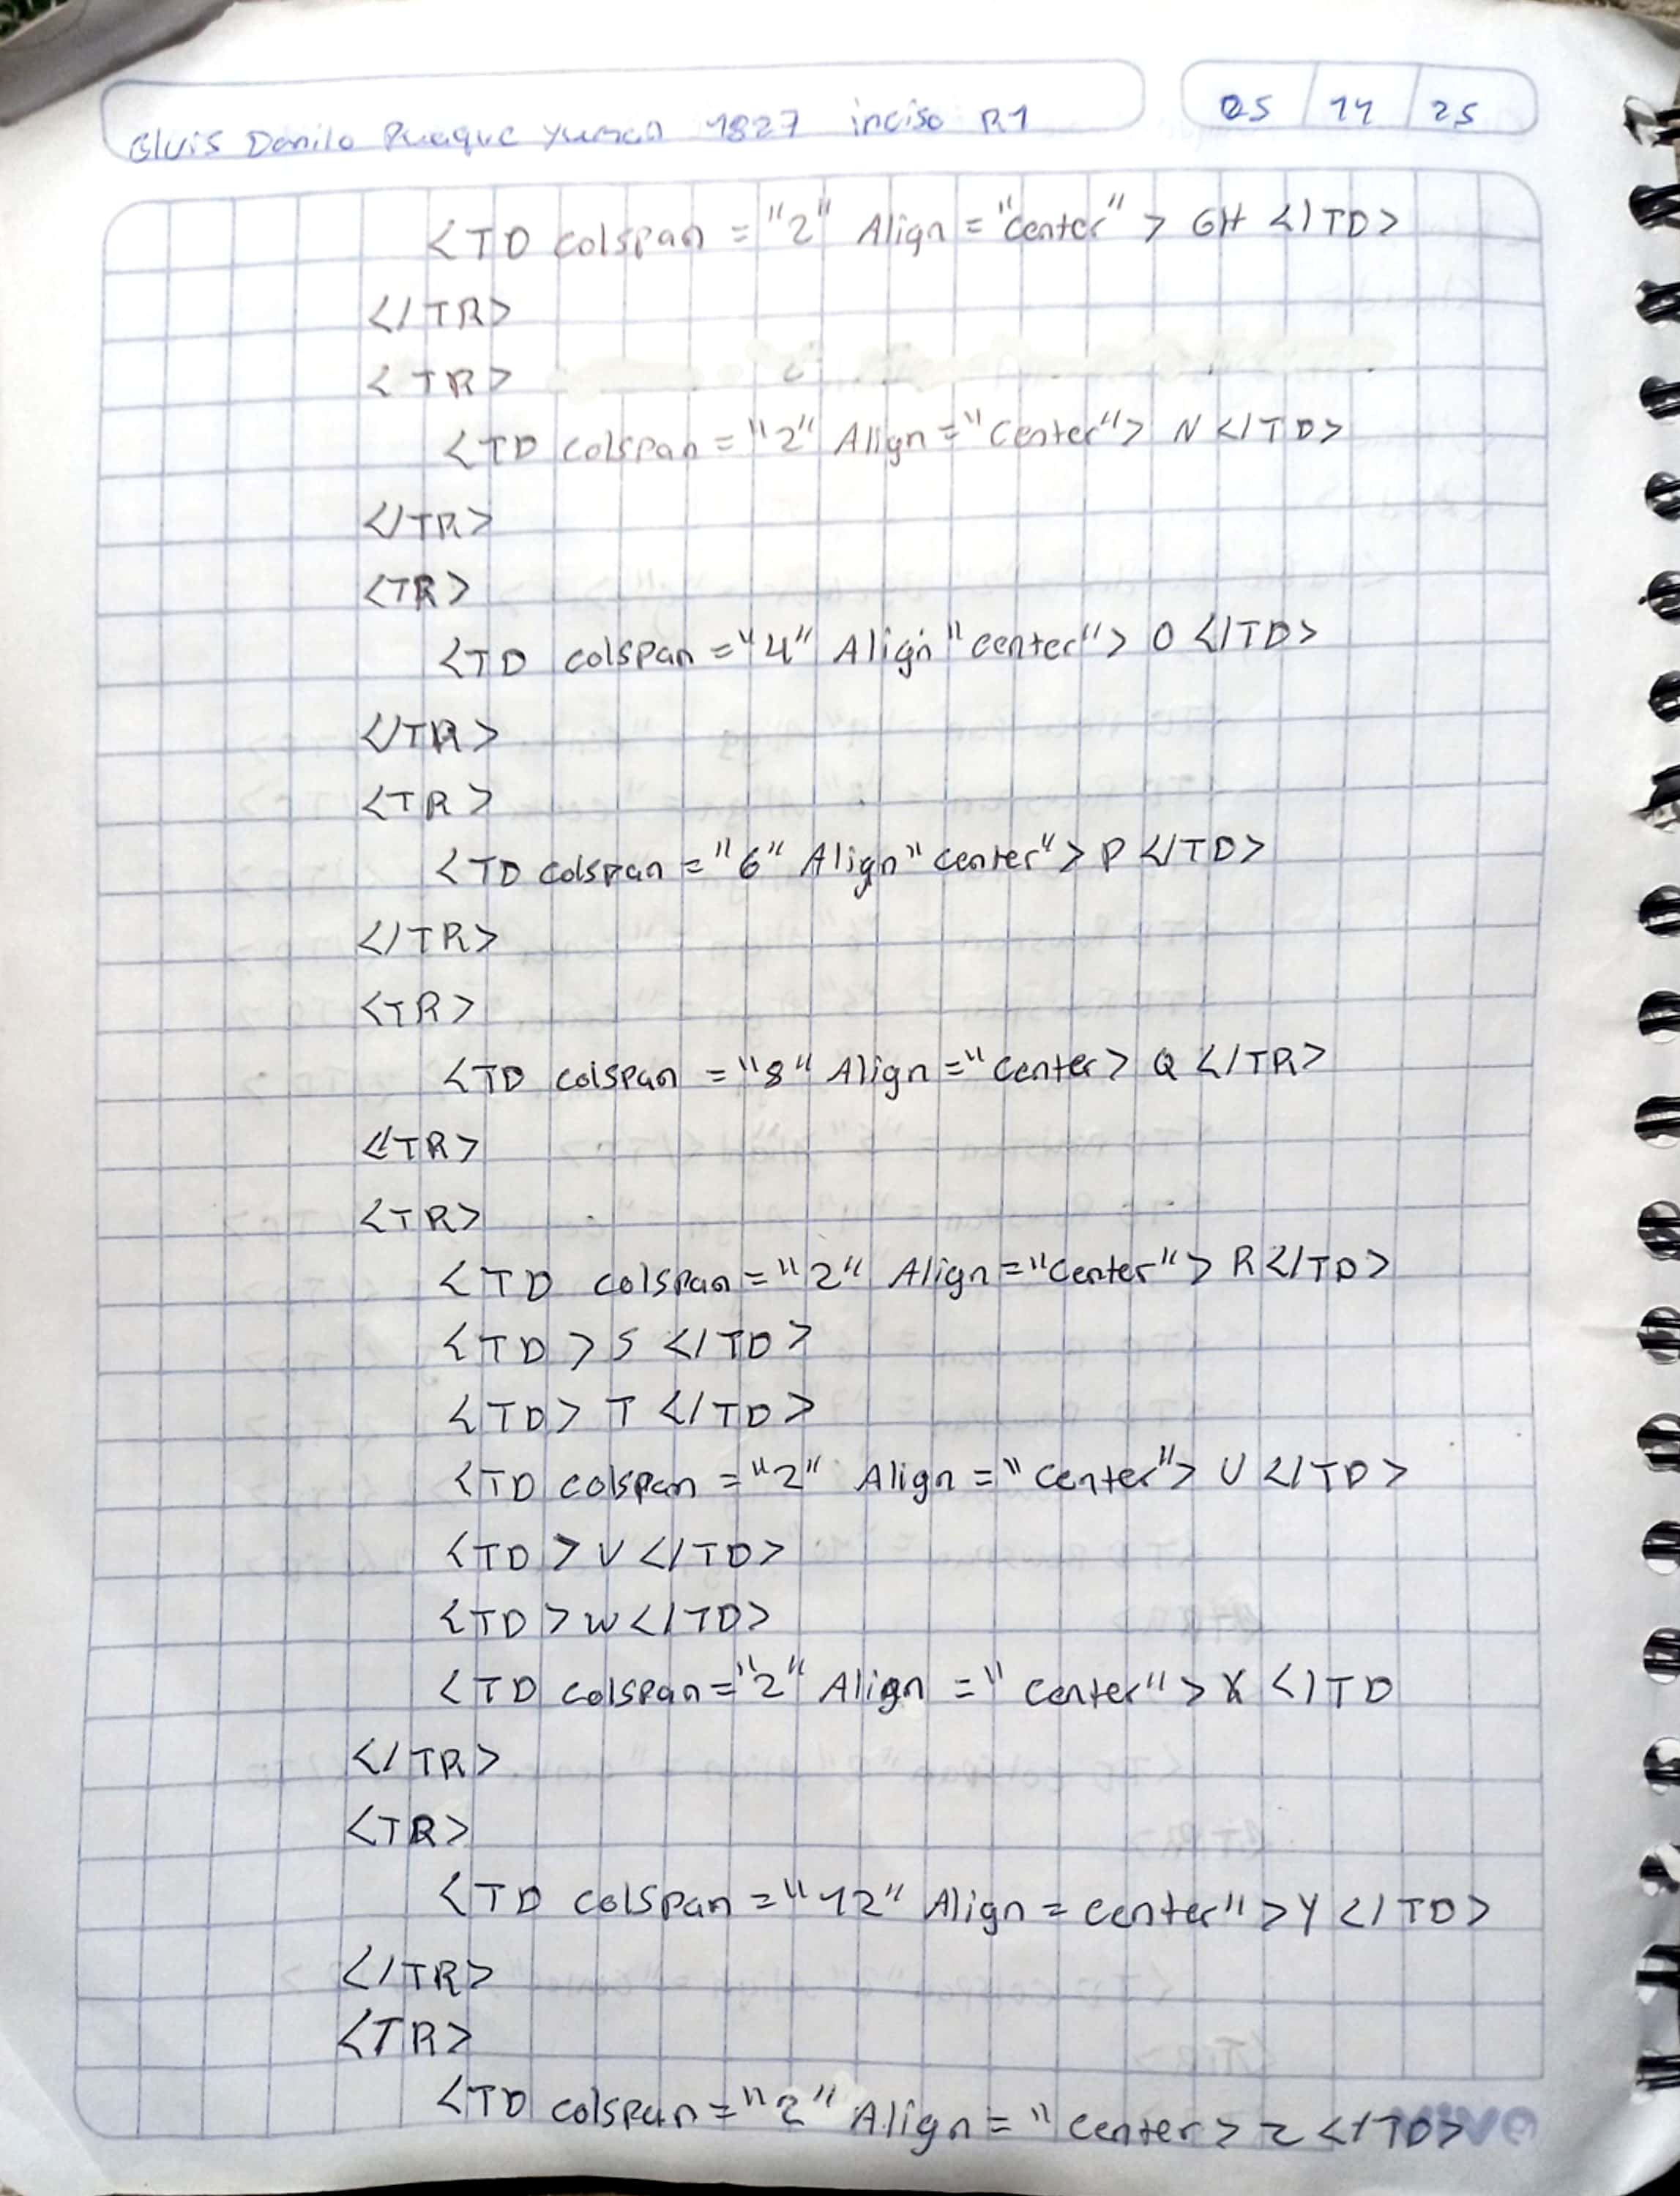 Elvis Danilo Yuman 1827 inciso R1 05 11 25
<TD colspan = "2" Align = "center" > GH </TD>
</TR>
<TR>
<TD colspan = "2" Align = "Center"> N </TD>
</TR>
<TR>
<TD colspan = "4" Align "center"> O </TD>
</TR>
<TR>
<TD colspan = "6" Align "center"> P </TD>
</TR>
<TR>
<TD colspan = "8" Align = "center> Q </TR>
</TR>
<TR>
<TD colspan = "2" Align = "center"> R </TD>
<TD > S </TD>
<TD> T </TD>
<TD colspan = "2" Align = "center"> U </TD>
<TD > V </TD>
<TD > W </TD>
<TD colspan = "2" Align = "center" > X </TD
</TR>
<TR>
<TD colspan = "12" Align = center" > Y </TD>
</TR>
<TR>
<TD colspan = "2" Align = "center > Z </TD>